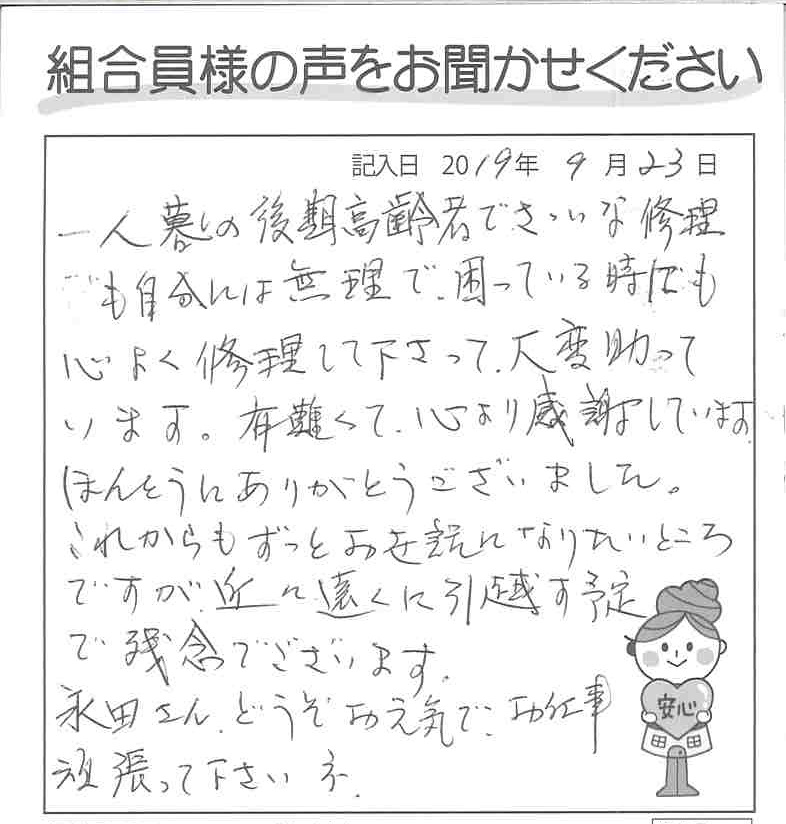 組合員様の声をお聞かせください
記入日 2019年 9月23日
一人暮しの後期高齢者でささいな修理
も自分には無理で、困っている時にでも
心よく修理して下さって、大変助って
います。有難くて、心より感謝しています
ほんとうにありがとうございました。
これからもずっとお世話になりたいところ
ですが、近々遠くに引越す予定
で残念でございます。
永田さん、どうぞお元気で、お仕事
頑張って下さいネ.
安心